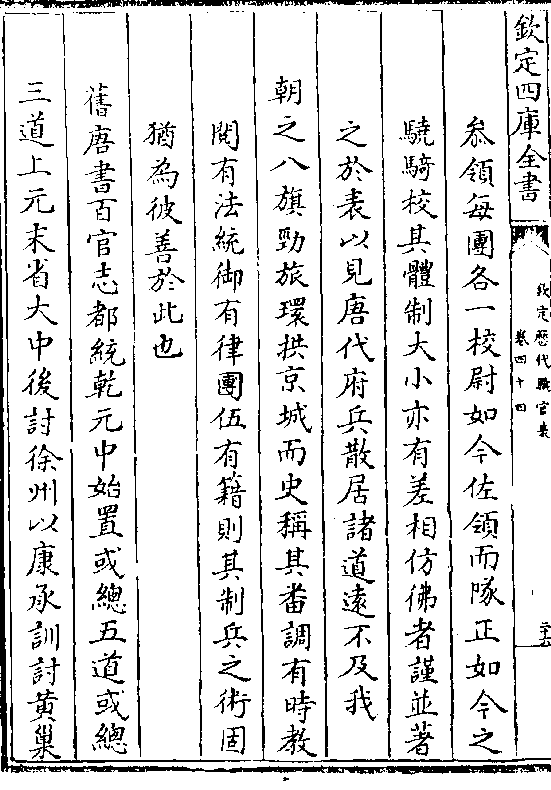 欽定四庫全書
欽定歷代職官表
卷四十四
二十六
叅領每團各一校尉如今佐領而隊正如今之
驍騎校其體制大小亦有差相仿佛者謹並著
之於表以見唐代府兵散居諸道遠不及我
朝之八旗勁旅環拱京城而史稱其畨調有時教
閱有法統御有律團伍有籍則其制兵之術固
猶為彼善於此也
舊唐書百官志都統乾元中始置或總五道或總
三道上元末省大中後討徐州以康承訓討黄巢